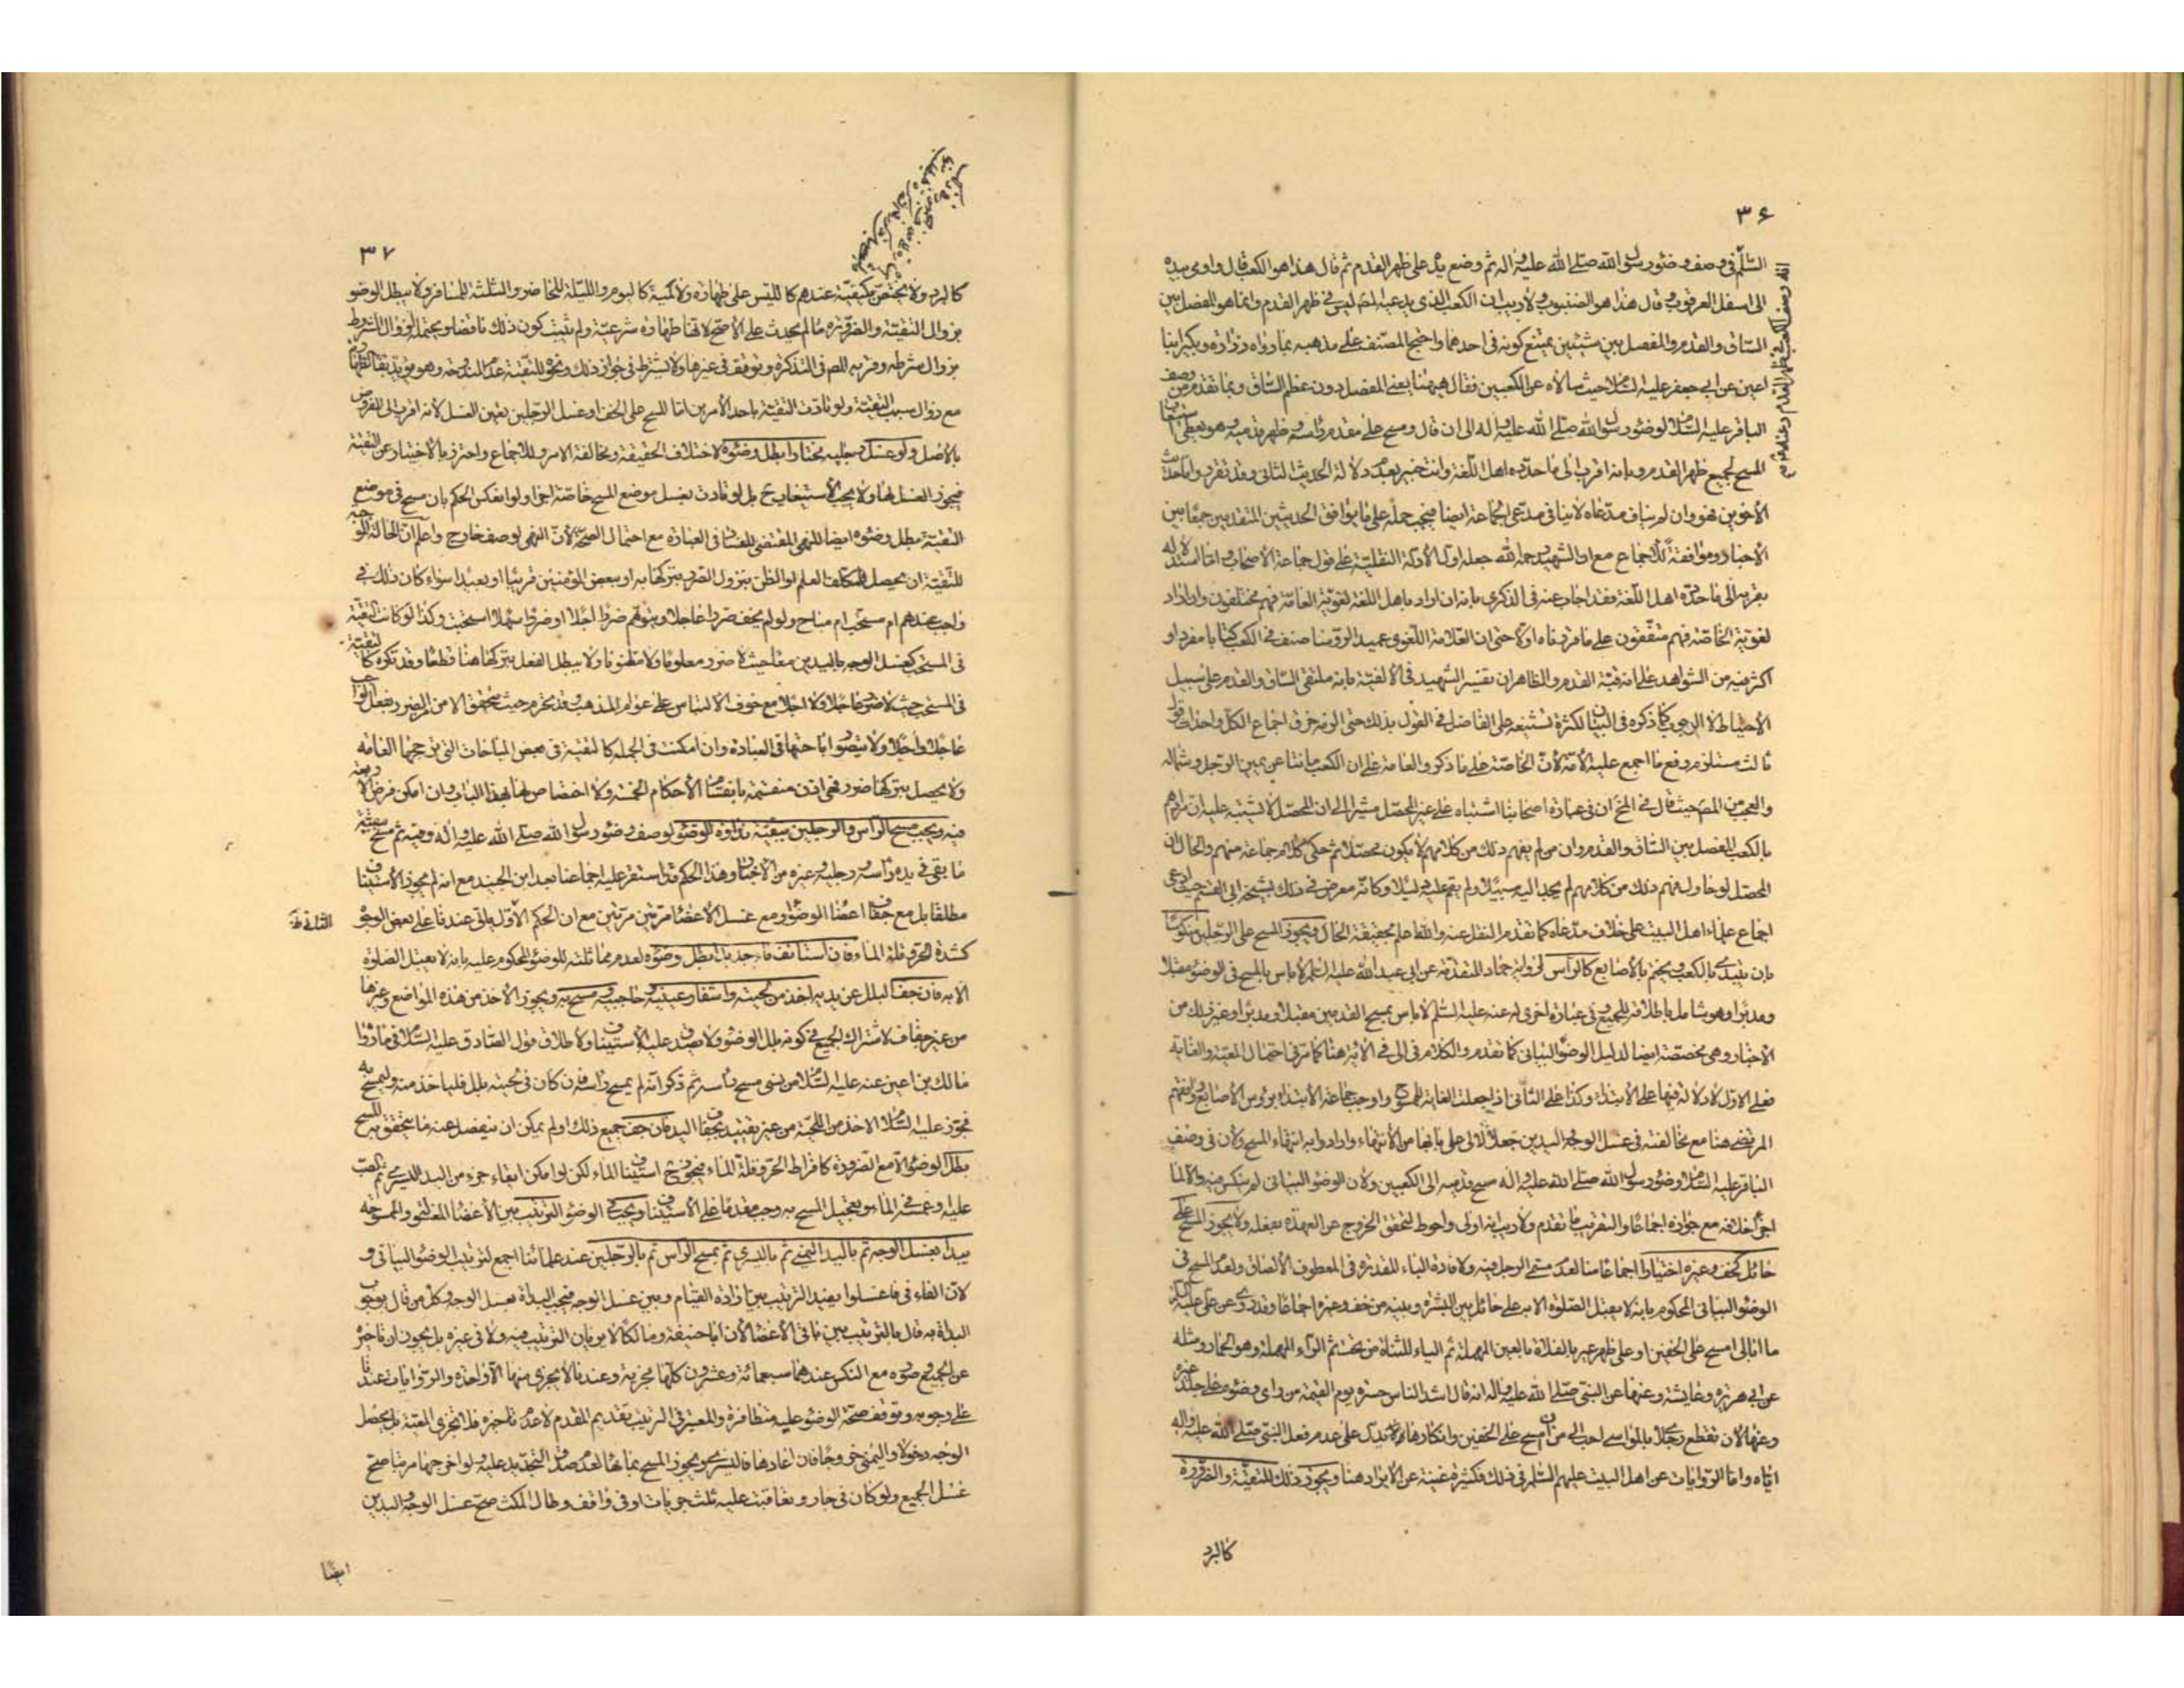 ٣٦
السلم فی وصف وضوء رسول الله صلی الله علیه و اله ثم وضع یده علی ظهر القدم ثم قال هذا هو الکعب قال و اومی بیده
الی اسفل العرقوب و قال هذا هو الظنبوب و لا ریب ان الکعب الذی یدعیه المص لیس فی ظهر القدم و انما هو المفصل بین
الساق و القدم و المفصل بین شیئین یمتنع کونه فی احدهما و احتج المصنف علی مذهبه بما رواه زراره و بکیر ابنا
اعین عن ابی جعفر علیه السلام حیث سالاه عن الکعبین فقال هیهنا یعنی المفصل دون عظم الساق و بما تقدم من وصف
الباقر علیه السلام لوضوء رسول الله صلی الله علیه و اله الی ان قال و مسح علی مقدم راسه و ظهر قدمیه و هو یعطی استیعاب
المسح لجمیع ظهر القدم و بانه اقرب الی ما حدده اهل اللغة و انت خبیر بعدم دلالة الحدیث الثانی و قد تفرد
الاخوین فهو و ان لم یناف مدعاه لا ینافی مدعی الجماعة ایضا فیجب حمله علی ما یوافق الحدیثین المتقدمین جمعا بین
الاخبار و موافقة للاجماع مع ان الشهید رحمه الله جعله اول الادلة النقلیة علی قول جماعة الاصحاب و اما استدلاله
بقربه الی ما حدده اهل اللغة فقد اجاب عنه فی الذکری بانه ان اراد باهل اللغة لغویة العامة فهم مختلفون و ان اراد
لغویة الخاصة فهم متفقون علی ما قررناه اولا حتی ان العلامة اللغوی عمید الرؤسا صنف فی الکعب کتابا مفردا و
اکثر فیه من الشواهد علی انه قبة القدم و الظاهر ان تفسیر الشهید فی الالفیة بانه ملتقی الساق و القدم علی سبیل
الاحتیاط لا الوجوب کما ذکره فی البیان لکثرة تشنیعه علی الفاضل فی القول بذلک حتی الزمه خرق اجماع الکل و احداث قول
ثالث مستلزم رفع ما اجمع علیه الامة لان الخاصة علی ما ذکر و العامة علی ان الکعب ما نتا عن یمین الرجل و شماله
و العجب من المص حیث قال فی المخ ان فی عبارة اصحابنا اشتباه علی غیر المحصل مشیرا الی ان المحصل لا یشتبه علیه ان مرادهم
بالکعب المفصل بین الساق و القدم و ان من لم یفهم ذلک من کلامهم لا یکون محصلا ثم حکی کلام جماعة منهم و الحال ان
المحصل لو حاول فهم ذلک من کلامهم لم یجد الیه سبیلا و لم یقم علیه دلیلا و کانه معرض فی ذلک بشیخه ابی القسم حیث ادعی
اجماع علماء اهل البیت علی خلاف مدعاه کما تقدم النقل عنه و الله اعلم بحقیقة الحال و یجوز المسح علی الرجلین منکوسا
بان یبتدی بالکعب و یختم بالاصابع کالراس لروایة حماد المتقدمة عن ابی عبد الله علیه السلم لا باس بالمسح فی الوضوء مقبلا
و مدبرا و هو شامل باطلاقه للجمیع و فی عبارة اخری له عنه علیه السلم لا باس بمسح القدمین مقبلا و مدبرا و غیر ذلک من
الاخبار و هی مخصصة ایضا لدلیل الوضوء البیانی کما تقدم و الکلام فی الی فی الایة هنا کما مر فی احتمال المعیة و الغایة
فعلی الاول لا دلالة فیها علی الابتداء و کذا علی الثانی اذا جعلت الغایة للممسوح و اوجب جماعة الابتداء برؤس الاصابع و منهم
المرتضی هنا مع مخالفته فی غسل الوجه و الیدین جعلا لالی علی بابها من الانتهاء و ارادوا به انتهاء المسح و لان فی وصف
الباقر علیه السلام وضوء رسول الله صلی الله علیه و اله مسح قدمیه الی الکعبین و لان الوضوء البیانی لم ینکس فیه و الا لما
اجزأ خلافه مع جوازه اجماعا و التقریب ما تقدم و لا ریب انه اولی و احوط لتحقق الخروج عن العهدة بفعله و لا یجوز المسح علی
حائل کخف و غیره اختیارا اجماعا منا لعدم مسمی الرجل فیه و لافادة الباء المقدرة فی المعطوف الالصاق و لعدم المسح فی
الوضوء البیانی المحکوم بانه لا یقبل الصلوة الا به علی حائل بین البشرة و بینه من خف و غیره اجماعا و قد روی عن علی علیه السلم
ما ابالی امسح علی الخفین او علی ظهر عیر بالفلاة بالعین المهملة ثم الیاء المثناة من تحت ثم الراء المهملة و هو الحمار و مثله
عن ابی هریره و عایشة و عنها عن النبی صلی الله علیه و اله انه قال اشد الناس حسرة یوم القیمة من رای وضوءه علی جلد غیره
و عنها لان تقطع رجلای بالمواسی احب الی من ان امسح علی الخفین و انکارها یدل علی عدم فعل النبی صلی الله علیه و اله
ایاه و اما الروایات عن اهل البیت علیهم السلم فی ذلک فکثیرة غنیة عن الایراد هنا و یجوز ذلک للتقیة و الضرورة
کالبرد
٣٧
کالبرد و لا یختص بکیفیة عندهم کاللبس علی طهارة و لا کمیة کالیوم و اللیلة للحاضر و الثلثة للمسافر و لا یبطل الوضوء
بزوال التقیة و الضرورة ما لم یحدث علی الاصح لانها طهارة شرعیة و لم یثبت کون ذلک ناقضا و یحتمله لزوال المشروط
بزوال شرطه و قربه المص فی التذکرة و توقف فی غیرها و لا یشترط فی جواز ذلک و نحوه للتقیة عدم المندوحة و هو یؤید بقاء الطهارة
مع زوال سبب التقیة و لو تادت التقیة باحد الامرین اما المسح علی الخف او غسل الرجلین تعین الغسل لانه اقرب الی المفروض
بالاصل و لو غسل رجلیه مختارا بطل وضوءه لاختلاف الحقیقة و مخالفة الامر و للاجماع و احترز بالاختیار عن التقیة
فیجوز الغسل لها و لا یجب الاستیعاب ح بل لو تادت بغسل موضع المسح خاصة اجزأ و لو انعکس الحکم بان مسح فی موضع
التقیة بطل وضوءه ایضا للنهی المقتضی للفساد فی العبادة مع احتمال الصحة لان النهی لوصف خارج و اعلم ان الحالة الموجبة
للتقیة ان یحصل للمکلف العلم او الظن بنزول الضرر بترکها به او ببعض المؤمنین قریبا او بعیدا سواء کان ذلک فی
واجب عندهم ام مستحب ام مباح و لو لم یخف ضررا عاجلا و یتوهم ضررا اجلا او ضررا سهلا استحبت و کذا لو کانت التقیة
فی المستحب کغسل الوجه بالیدین معا حیث لا ضرر معلوما و لا مظنونا و لا یبطل الفعل بترکها هنا قطعا و قد تکره کالتقیة
فی المستحب حیث لا ضرر عاجلا و لا اجلا مع خوف الالتباس علی عوام المذهب و قد تحرم حیث یتحقق الامن من الضرر بفعل الواجب
عاجلا و اجلا و لا یتصور اباحتها فی العبادة و ان امکنت فی الجملة کالتقیة فی بعض المباحات التی ترجحها العامة
و لا یحصل بترکها ضرر فهی اذن منقسمة بانقسام الاحکام الخمسة و لا اختصاص لها بهذا الباب و ان امکن فرض الاربعة
فیه و یجب مسح الراس و الرجلین ببقیة نداوة الوضوء لوصف وضوء رسول الله صلی الله علیه و اله و فیه ثم مسح ببقیة
ما بقی فی یده راسه و رجلیه و غیره من الاخبار و هذا الحکم قد استقر علیه اجماعنا بعد ابن الجنید مع انه لم یجوز الاستیناف
مطلقا بل مع جفاف اعضاء الوضوء و مع غسل الاعضاء مرتین مرتین مع ان الحکم الاول یاتی عندنا علی بعض الوجوه
کشدة الحر و قلة الماء فان استانف ماء جدیدا بطل وضوءه لعدم مماثلته للوضوء المحکوم علیه بانه لا یقبل الصلوة
الا به فان جف البلل عن یدیه اخذ من لحیته و اشفار عینیه و حاجبیه و مسح به و یجوز الاخذ من هذه المواضع و غیرها
من غیر جفاف لاشتراک الجمیع فی کونه بلل الوضوء و لا یصدق علیه الاستیناف و لاطلاق قول الصادق علیه السلام فی ما رواه
مالک بن اعین عنه علیه السلام من نسی مسح راسه ثم ذکر انه لم یمسح راسه فان کان فی لحیته بلل فلیاخذ منه و لیمسح به
فجوز علیه السلام الاخذ من اللحیة من غیر تقیید بجفاف الید فان جف جمیع ذلک او لم یمکن ان ینفصل عنه ما یتحقق به المسح
بطل الوضوء الا مع الضرورة کافراط الحر و قلة الماء فیجوز ح استیناف الماء لکن لو امکن ابقاء جزء من الید الیسری ثم الصب
علیه او غمسه فی الماء و تعجیل المسح به وجب مقدما علی الاستیناف و یجب فی الوضوء الترتیب بین الاعضاء المغسولة و الممسوحة
یبدا بغسل الوجه ثم بالید الیمنی ثم بالیسری ثم بمسح الراس ثم بالرجلین عند علمائنا اجمع لترتیب الوضوء البیانی و
لان الفاء فی فاغسلوا یفید الترتیب بین ارادة القیام و بین غسل الوجه فتجب البدأة بغسل الوجه و کل من قال بوجوب
البدأة به قال بالترتیب بین باقی الاعضاء لان ابا حنیفة و مالکا لا یریان الترتیب فیه و لا فی غیره بل یجوزان تاخیره
عن الجمیع و صوره مع النکس عندهما سبعمائة و عشرون کلها مجزیة و عندنا لا یجزی منها الا واحدة و الروایات عندنا
علی وجوبه و توقف صحة الوضوء علیه متظافرة و المعتبر فی الترتیب تقدیم المقدم لا عدم تاخیره فلا تجزی المعیة بل یحصل
الوجه دخولا و الیمنی خروجا فان اعادها فالیسری و یجوز المسح بمائها لعدم صدق التجدید علیه و لو اخرجها مرتبا صح
غسل الجمیع و لو کان فی جار و تعاقبت علیه ثلث جریات او فی واقف و طال المکث صح غسل الوجه و الیدین
ایضا